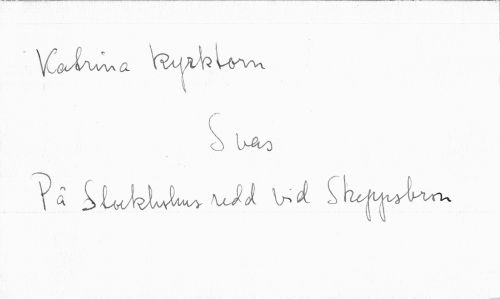 Katrina kyrktorn
Svas
På Stockholms redd vid Skeppsbron